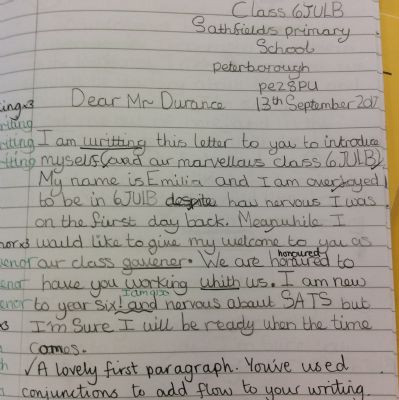 Class 6JULB
Sathfields primary
School
peterborough
pe2 8PU
Dear Mr Durance 13th September 2017
I am writting this letter to you to introduce
myself (and our marvellous class 6JULB).
My name is Emilia and I am overjoyed
to be in 6JULB despite how nervous I was
on the fiirst day back. Meanwhile I
would like to give my welcome to you as
our class gavener. We are honoured to
have you working whith us. I am new
to year six! I am also and nervous about SATS but
I'm Sure I will be ready when the time
comes.
✓ A lovely first paragraph. You've used
conjunctions to add flow to your writing.